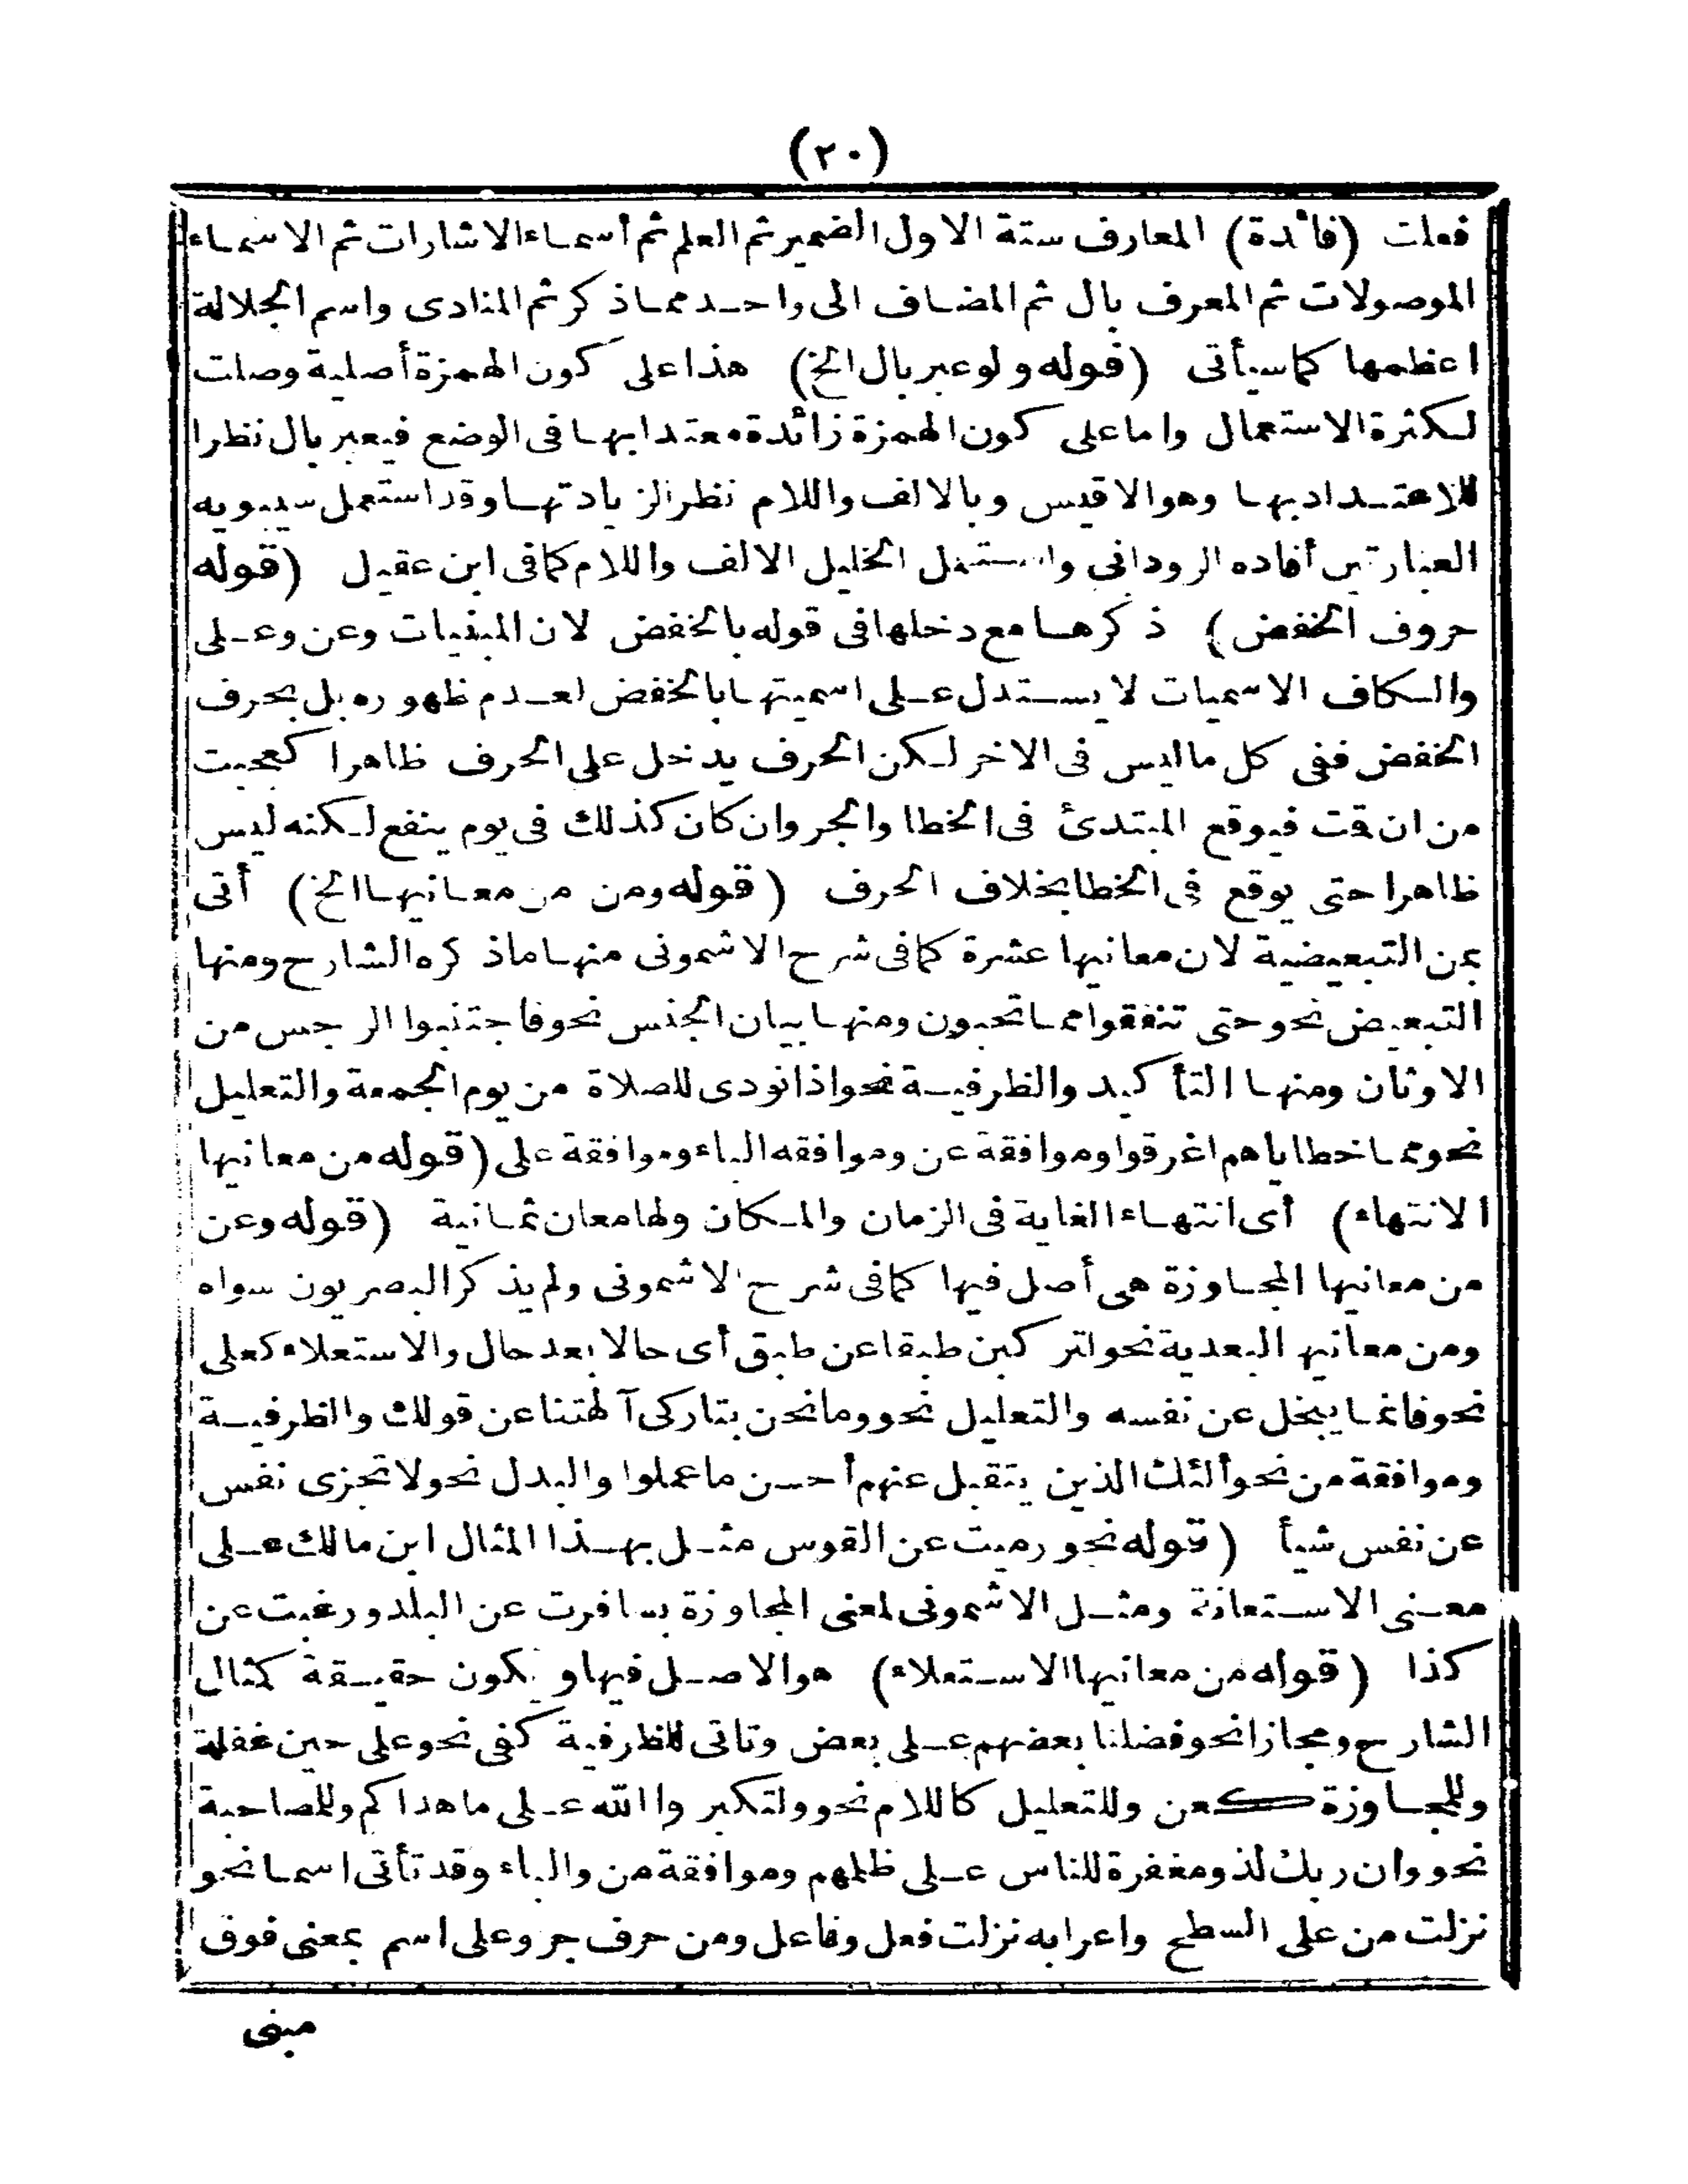 (٢٠)
فعلت (فائدة) المعارف ستة الاول الضمير ثم العلم ثم أسماء الاشارات ثم الاسماء
الموصولات ثم المعرف بال ثم المضاف الى واحد مما ذكر ثم المنادى واسم الجلالة
اعظمها كما سيأتى (قوله ولو عبر بال الخ) هذا على كون الهمزة أصلية وصلت
لكثرة الاستعمال واما على كون الهمزة زائدة معتدا بها فى الوضع فيعبر بال نظرا
للاعتداد بها وهو الاقيس وبالالف واللام نظرا لزيادتها وقد استعمل سيبويه
العبارتين أفاده الرودانى واستعمل الخليل الالف واللام كما فى ابن عقيل (قوله
حروف الخفض) ذكرها مع دخلها فى قوله بالخفض لان المبنيات وعن وعلى
والكاف الاسميات لا يستدل على اسميتها بالخفض لعدم ظهوره بل بحرف
الخفض ففى كل ما ليس فى الاخر لكن الحرف يدخل على الحرف ظاهرا كعجبت
من ان قت فيوقع المبتدئ فى الخطا والجر وان كان كذلك فى يوم ينفع لكنه ليس
ظاهرا حتى يوقع فى الخطا بخلاف الحرف (قوله ومن من معانيها الخ) أتى
بمن التبعيضية لان معانيها عشرة كما فى شرح الاشمونى منها ما ذكره الشارح ومنها
التبعيض نحو حتى تنفقوا مما تحبون ومنها بيان الجنس نحو فاجتنبوا الرجس من
الاوثان ومنها التأكيد والظرفية نحو اذا نودى للصلاة من يوم الجمعة والتعليل
نحو مما خطاياهم اغرقوا وموافقة عن وموافقه الباء وموافقة على (قوله من معانيها
الانتهاء) أى انتهاء الغاية فى الزمان والمكان ولها معان ثمانية (قوله وعن
من معانيها المجاوزة هى أصل فيها كما فى شرح الاشمونى ولم يذكر البصريون سواه
ومن معانيها البعدية نحو لتركبن طبقا عن طبق أى حالا بعد حال والاستعلاء كعلى
نحو فانما يبخل عن نفسه والتعليل نحو وما نحن بتاركى آلهتنا عن قولك والظرفية
وموافقة من نحو ألئك الذين يتقبل عنهم أحسن ما عملوا والبدل نحو لا تجزى نفس
عن نفس شيأ (قوله نحو رميت عن القوس مثل بهذا المثال ابن مالك على
معنى الاستعانة ومثل الاشمونى لمعنى المجاوزة بسافرت عن البلد ورغبت عن
كذا (قوله من معانيها الاستعلاء) هو الاصل فيها ويكون حقيقة كمثال
الشارح ومجازا نحو فضلنا بعضهم على بعض وتاتى للظرفية كفى نحو على حين غفلة
وللمجاوزة كعن وللتعليل كاللام نحو ولتكبروا الله على ما هداكم وللمصاحبة
نحو وان ربك لذو مغفرة للناس على ظلمهم وموافقة من والباء وقد تأتى اسما نحو
نزلت من على السطح واعرابه نزلت فعل وفاعل ومن حرف جر وعلى اسم بمعنى فوق
مبنى